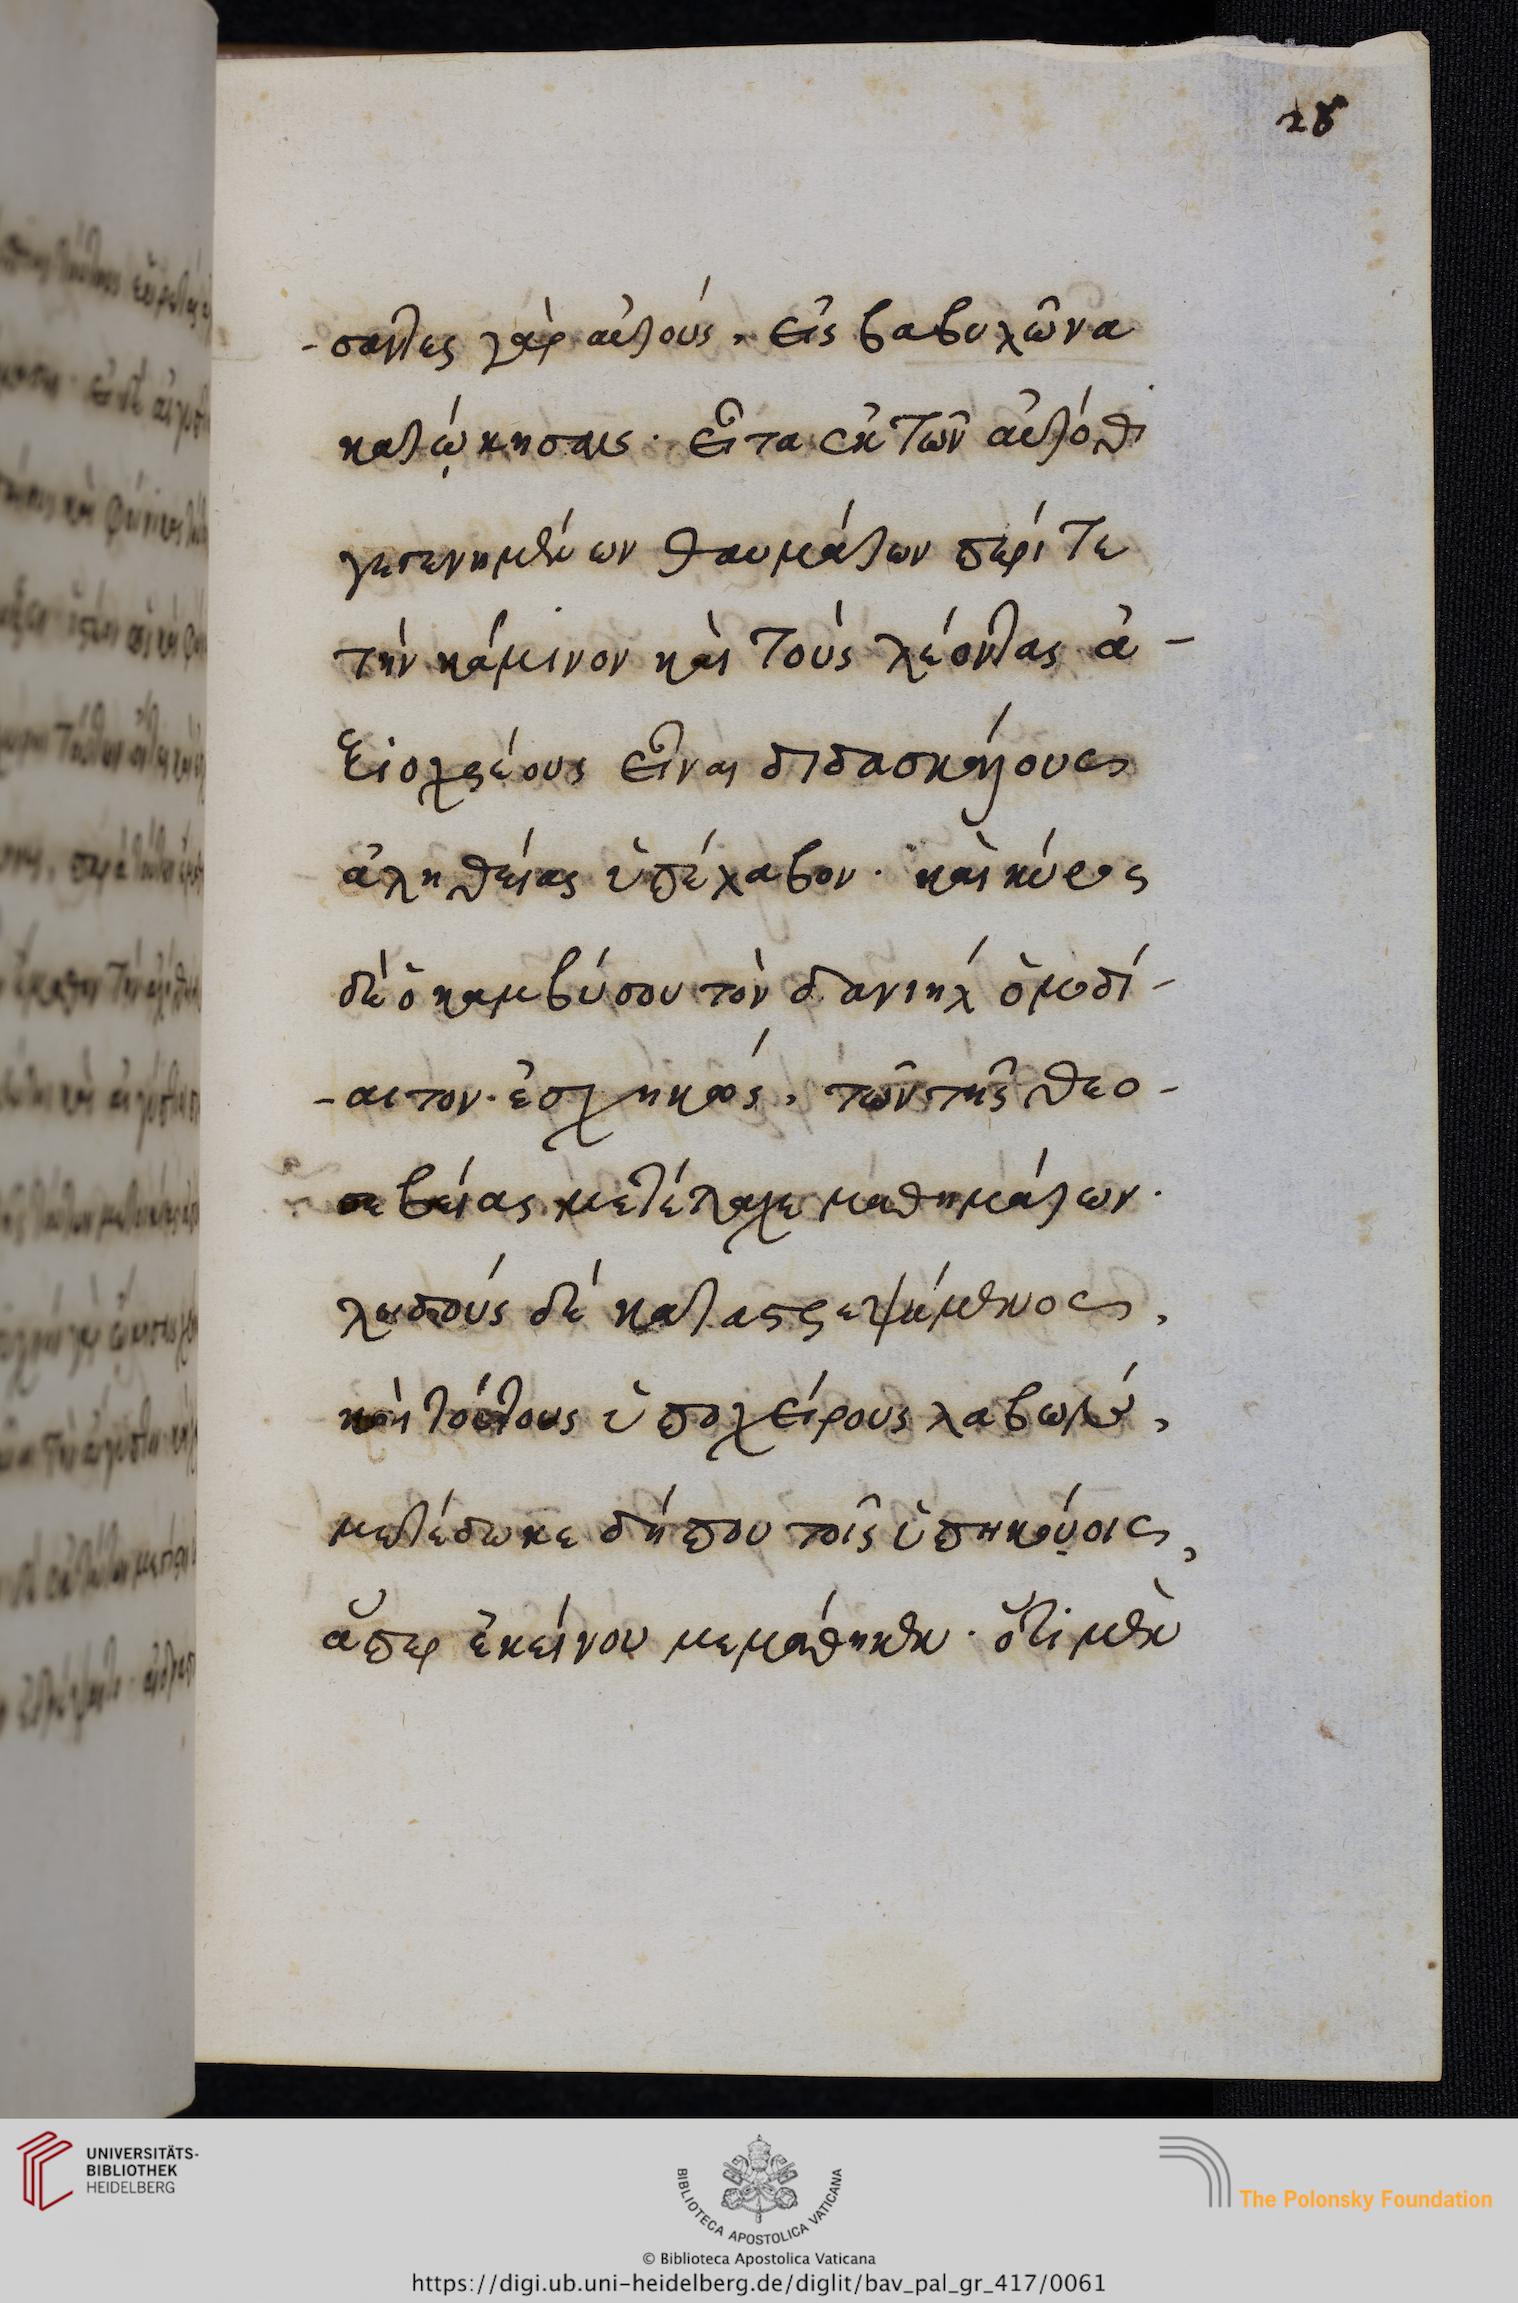 28
-σαντες γὰρ αὐτοὺς, εἰς βαβυλῶνα
κατῴκησαν· εἶτα ἐκ τῶν αὐτόθι
γεγενημένων θαυμάτων περί τε
τὴν κάμινον καὶ τοὺς λέοντας ἀ-
ξιοχρέους εἶναι διδασκάλους
ἀληθείας ὑπέλαβον· καὶ κύρος
δὲ ὁ καμβύσου τὸν δανιὴλ ὁμοδί-
-αιτον ἐσχηκὼς, τῶν τῆς θεο-
σεβείας μετέλαχε μαθημάτων·
λυδοὺς δὲ καταστρεψάμενος,
καὶ τούτους ὑποχείρους λαβὼν,
μετέδωκε δήπου τοῖς ὑπηκόοις,
ἅπερ ἐκείνου μεμάθηκεν· ὅτι μὲν
UNIVERSITÄTS-
BIBLIOTHEK
HEIDELBERG
BIBLIOTECA APOSTOLICA VATICANA
The Polonsky Foundation
© Biblioteca Apostolica Vaticana
https://digi.ub.uni-heidelberg.de/diglit/bav_pal_gr_417/0061